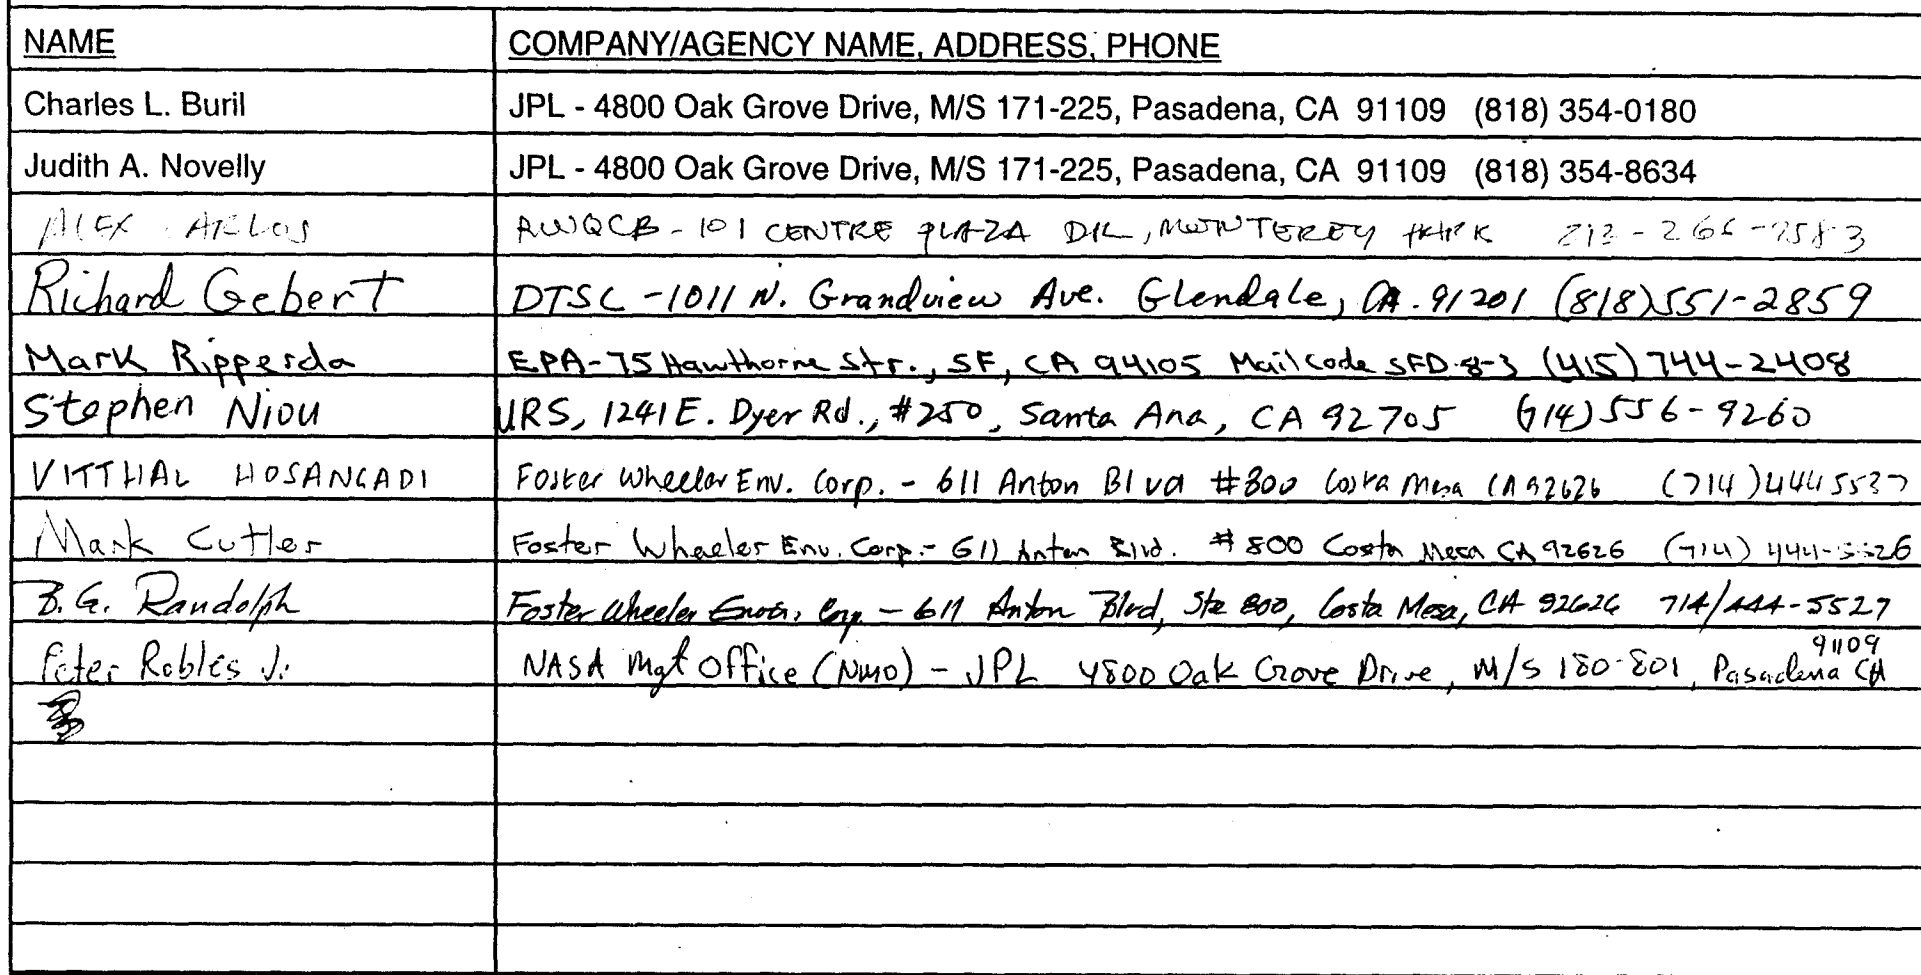 NAME COMPANY/AGENCY NAME, ADDRESS, PHONE
Charles L. Buril JPL - 4800 Oak Grove Drive, M/S 171-225, Pasadena, CA 91109 (818) 354-0180
Judith A. Novelly JPL - 4800 Oak Grove Drive, M/S 171-225, Pasadena, CA 91109 (818) 354-8634
ALEX RWQCB - 101 CENTRE PLAZA DR, MONTEREY PARK
Richard Gebert DTSC - 1011 N. Grandview Ave. Glendale, CA. 91201 (818) 551-2859
Mark Ripperda EPA - 75 Hawthorne Str., SF, CA 94105 Mail code SFD-8-3 (415) 744-2408
Stephen Niou URS, 1241 E. Dyer Rd., #250, Santa Ana, CA 92705 (714) 556-9260
VITTHAL HOSANGADI Foster Wheeler Env. Corp. - 611 Anton Blvd #800 Costa Mesa CA 92626 (714) 444 5537
Mark Cutler Foster Wheeler Env. Corp. - 611 Anton Blvd. #800 Costa Mesa CA 92626 (714)
B.G. Randolph Foster Wheeler Envir. Corp. - 611 Anton Blvd, Ste 800, Costa Mesa, CA 92626 714/444-5527
Peter Robles Jr. NASA Mgt Office (NMO) - JPL 4800 Oak Grove Drive, M/S 180-801, Pasadena CA 91109